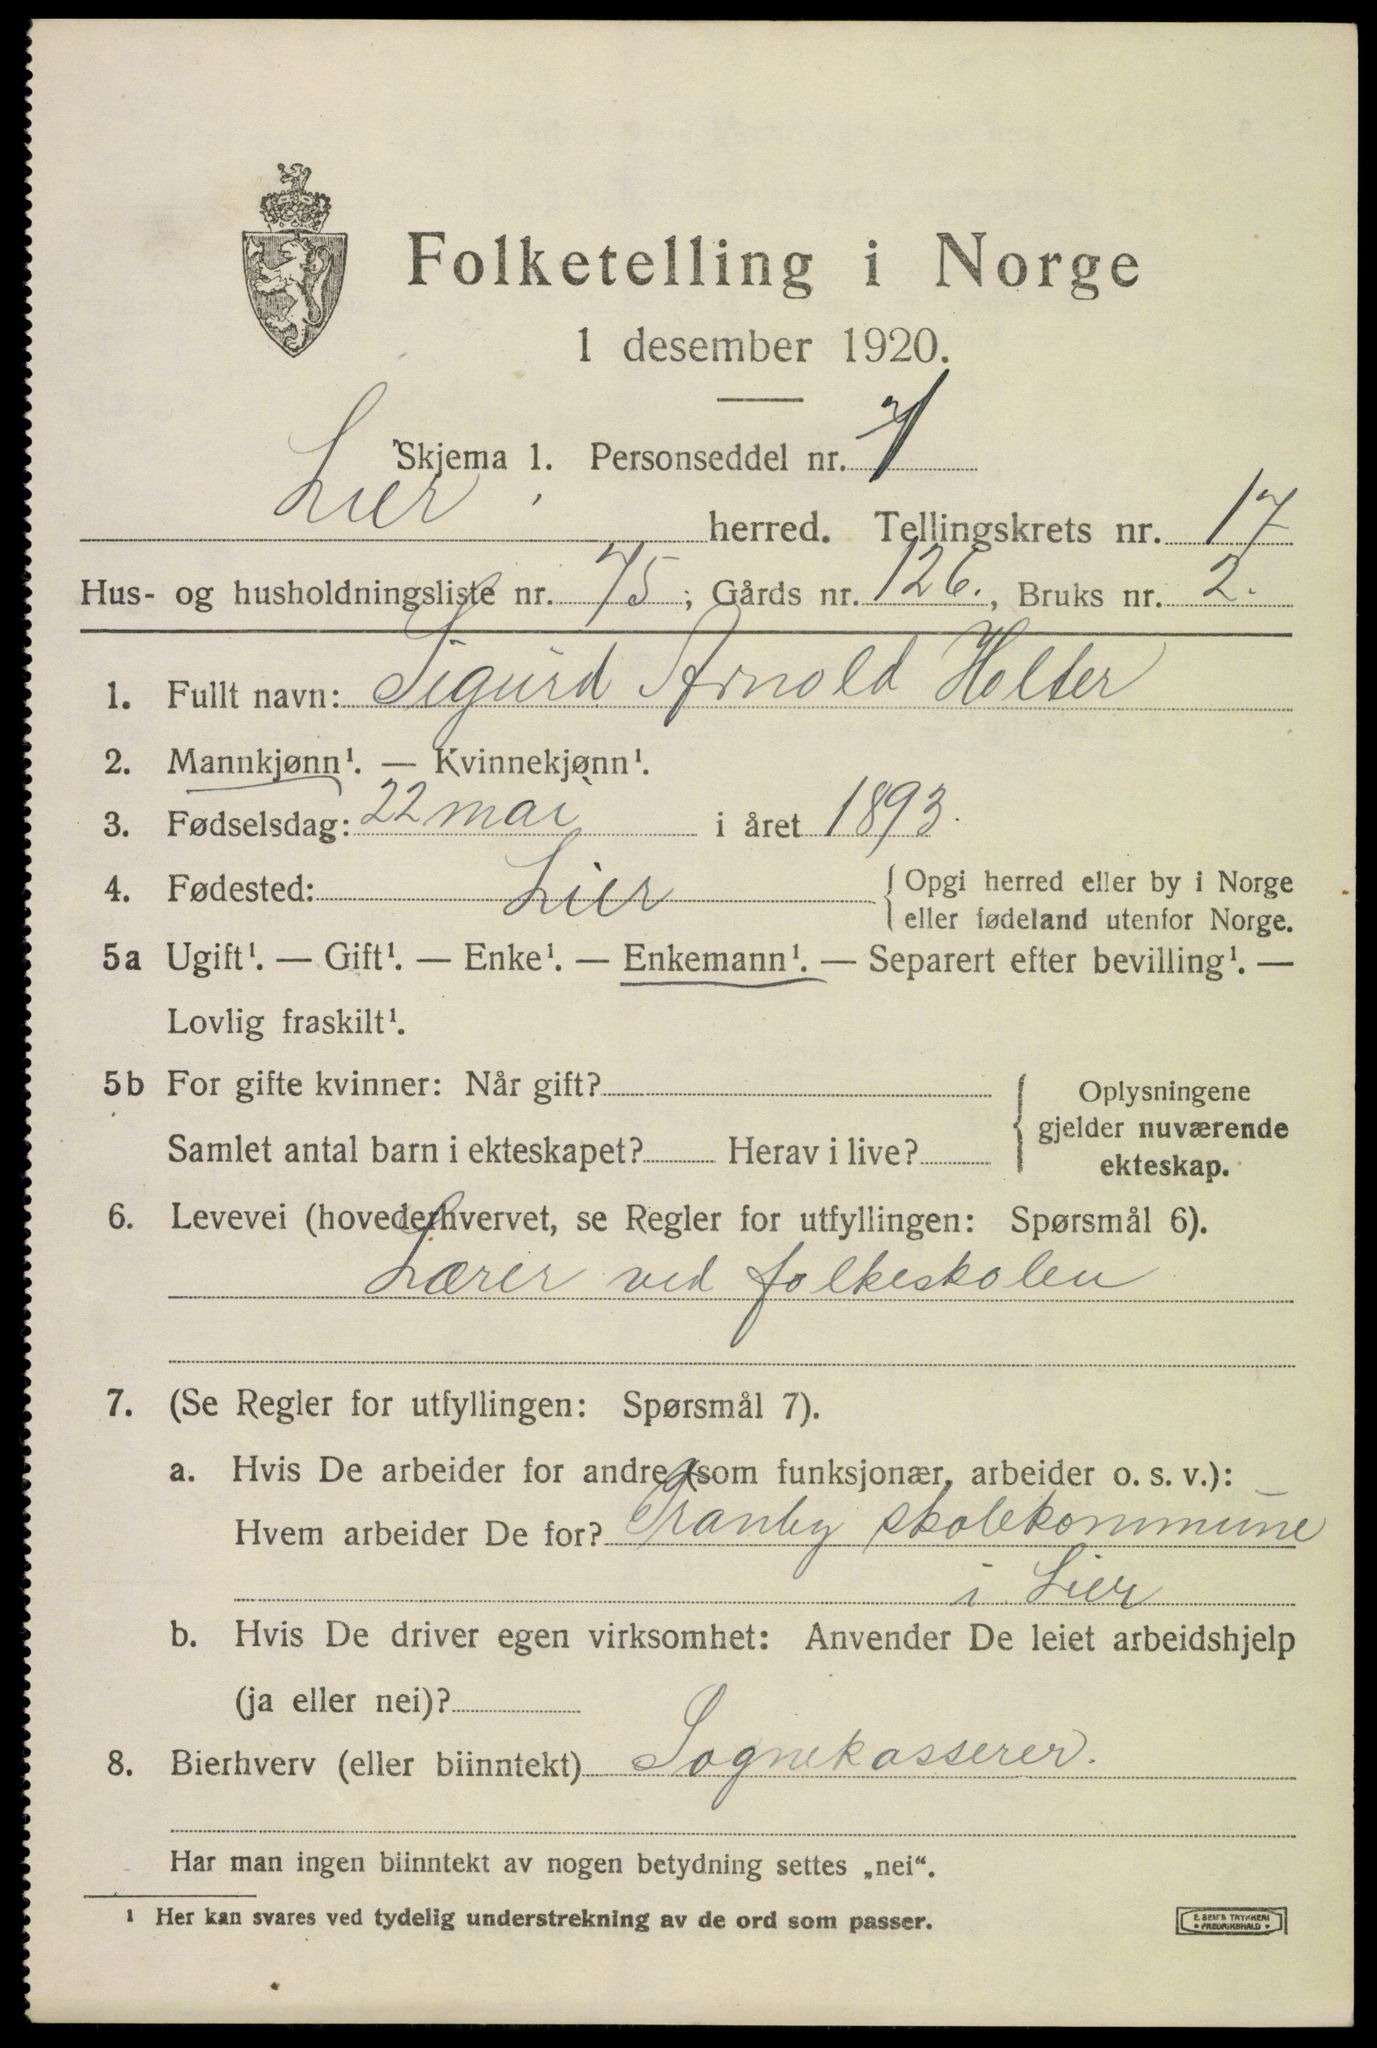 Folketelling i Norge
1 desember 1920.
Skjema 1. Personseddel nr.
Lier herred. Tellingskrets nr. 17
Hus- og husholdningsliste nr. 75; Gårds nr. 126., Bruks nr. 2.
1. Fullt navn: Sigurd Arnold Holter
2. Mannkjønn¹. — Kvinnekjønn¹.
3. Fødselsdag: 22 mai i året 1893.
4. Fødested: Lier { Opgi herred eller by i Norge
eller fødeland utenfor Norge.
5a Ugift¹. — Gift¹. — Enke¹. — Enkemann¹. — Separert efter bevilling¹. —
Lovlig fraskilt¹.
5b For gifte kvinner: Når gift?
Samlet antal barn i ekteskapet? Herav i live?
{ Oplysningene
gjelder nuværende
ekteskap.
6. Levevei (hovederhvervet, se Regler for utfyllingen: Spørsmål 6).
Lærer ved folkeskolen
7. (Se Regler for utfyllingen: Spørsmål 7).
a. Hvis De arbeider for andre (som funksjonær, arbeider o. s. v.):
Hvem arbeider De for? Tranby skolekommune
i Lier
b. Hvis De driver egen virksomhet: Anvender De leiet arbeidshjelp
(ja eller nei)?
8. Bierhverv (eller biinntekt) Sognekasserer.
Har man ingen biinntekt av nogen betydning settes „nei“.
¹ Her kan svares ved tydelig understrekning av de ord som passer.
E. SEM'S TRYKKERI
FREDRIKSHALD